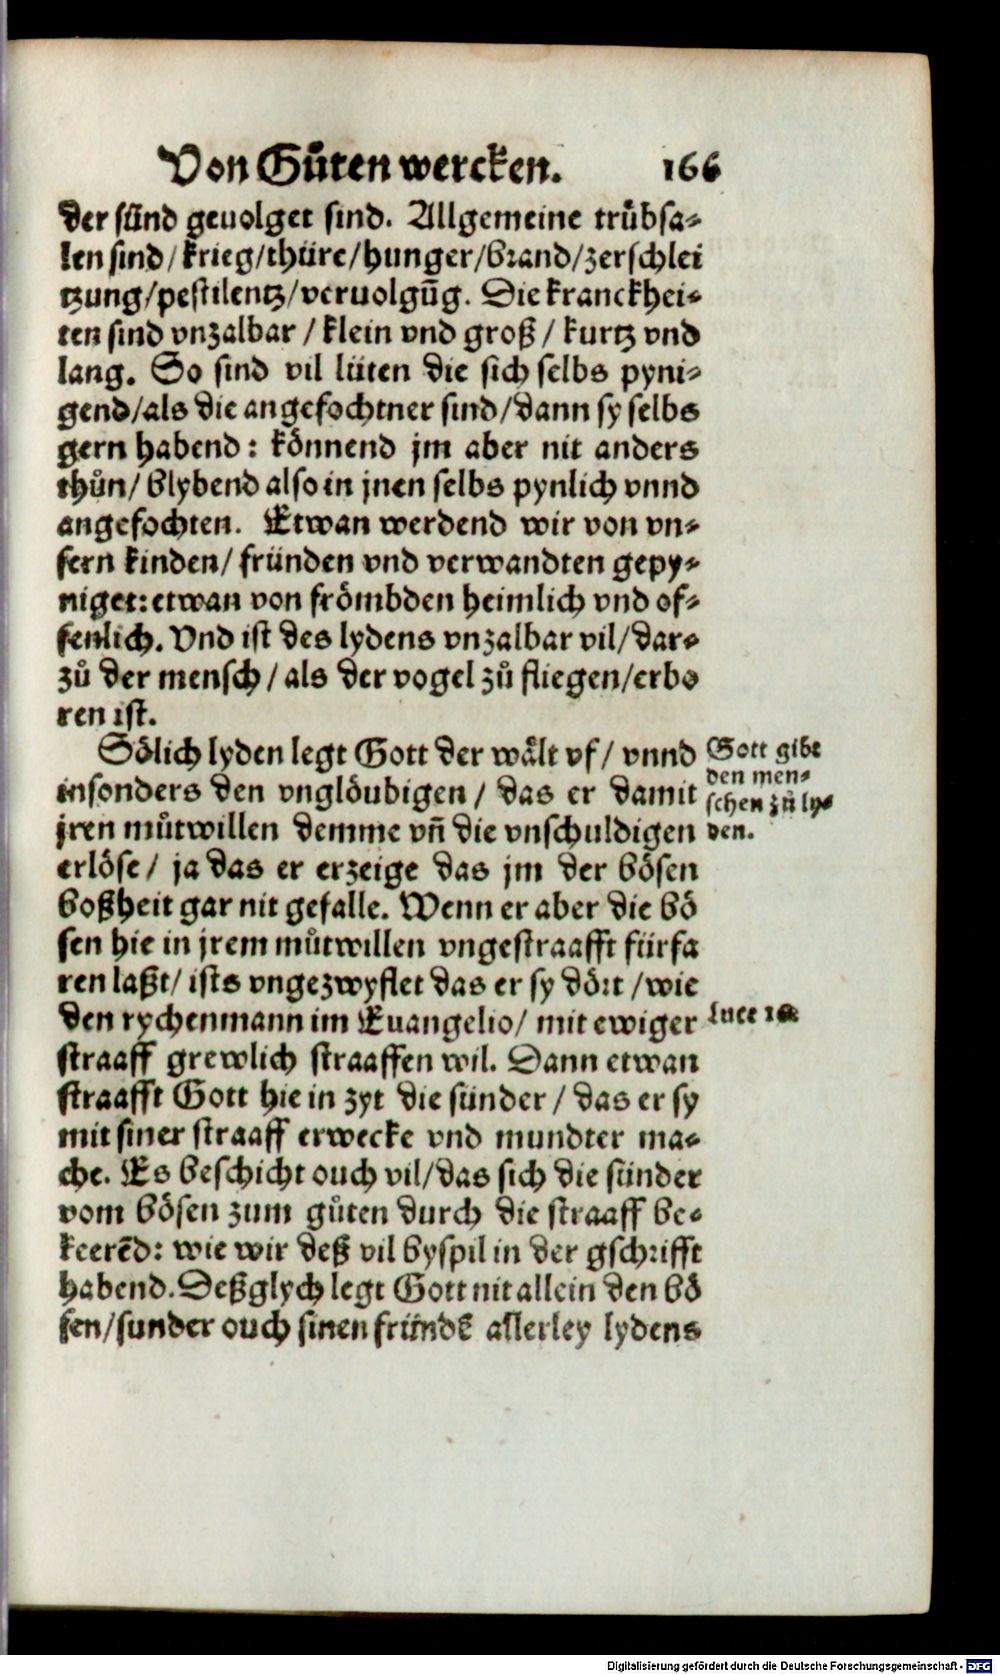 Von Gůten wercken. 166
der sünd geuolget sind. Allgemeine trübsa⸗
len sind/ krieg/thüre/hunger/brand/zerschlei
tzung/pestilentz/veruolgũg. Die kranckhei⸗
ten sind vnzalbar / klein vnd groß / kurtz vnd
lang. So sind vil lüten die sich selbs pyni⸗
gend/als die angefochtner sind/dann sy selbs
gern habend: könnend jm aber nit anders
thůn/ blybend also in jnen selbs pynlich vnnd
angefochten. Etwan werdend wir von vn⸗
sern kinden/ fründen vnd verwandten gepy⸗
niget: etwan von frömbden heimlich vnd of⸗
fenlich. Vnd ist des lydens vnzalbar vil/dar⸗
zů der mensch / als der vogel zů fliegen/erbo
ren ist.
Sölich lyden legt Gott der wält vf/ vnnd
insonders den vnglöubigen / das er damit
jren můtwillen demme vñ die vnschuldigen
erlöse/ ja das er erzeige das jm der bösen
boßheit gar nit gefalle. Wenn er aber die bö
sen hie in jrem můtwillen vngestraafft fürfa
ren laßt/ ists vngezwyflet das er sy dört /wie
den rychenmann im Euangelio/ mit ewiger
straaff grewlich straaffen wil. Dann etwan
straafft Gott hie in zyt die sünder / das er sy
mit siner straaff erwecke vnd mundter ma⸗
che. Es beschicht ouch vil/das sich die sünder
vom bösen zum gůten durch die straaff be⸗
keerẽd: wie wir deß vil byspil in der gschrifft
habend. Deßglych legt Gott nit allein den bö
sen/sunder ouch sinen fründẽ allerley lydens
Gott gibt
den men⸗
schen zů ly⸗
den.
Luce 16
Digitalisierung gefördert durch die Deutsche Forschungsgemeinschaft - DFG